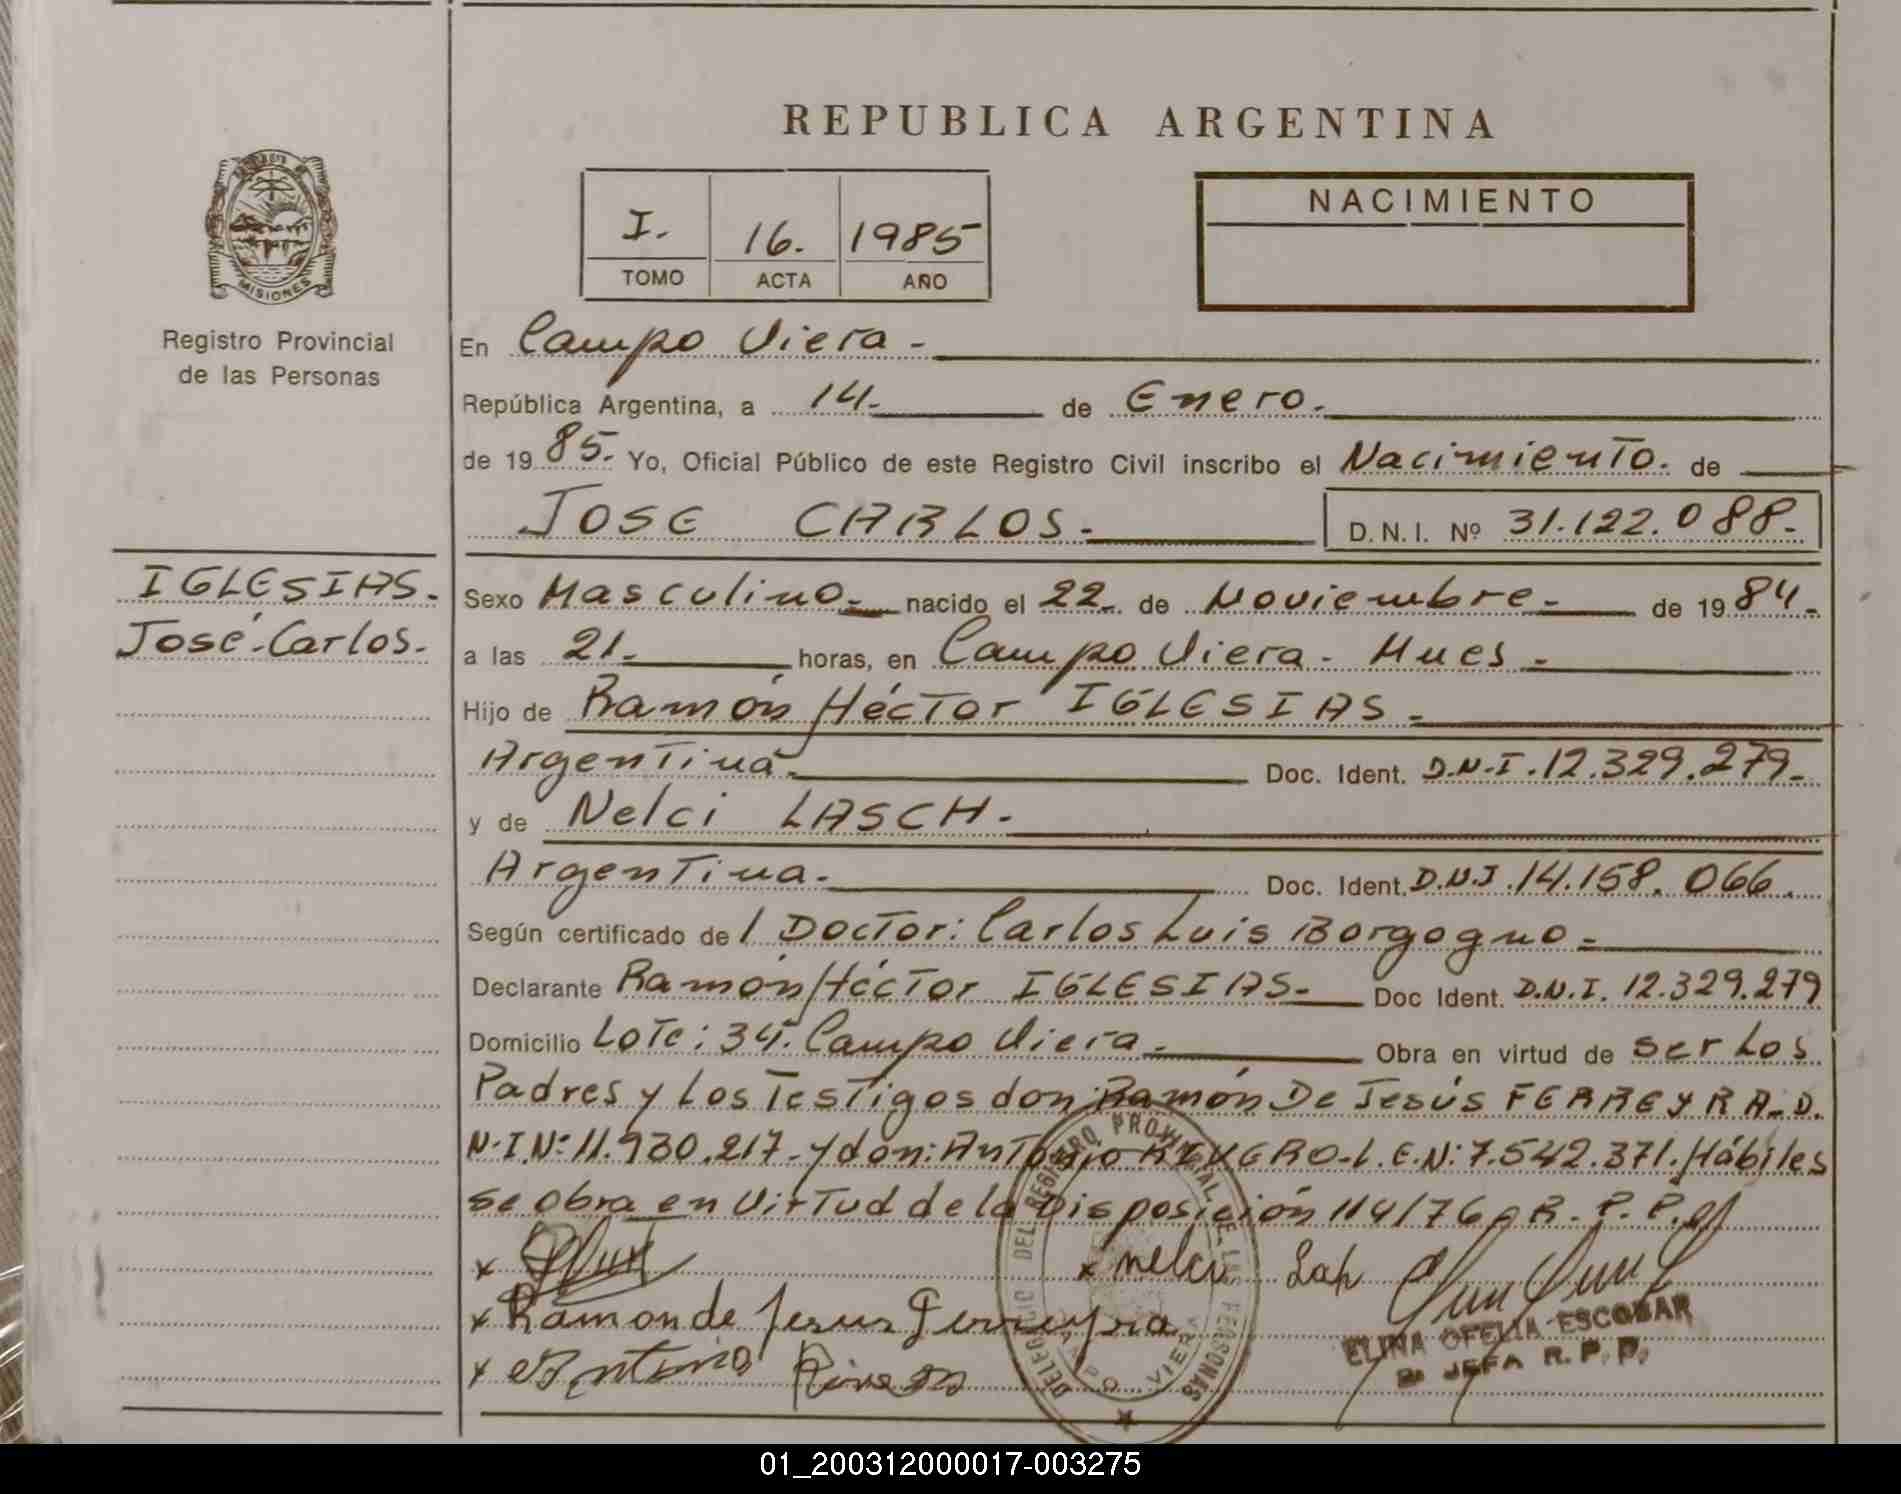 REPUBLICA ARGENTINA
MISIONES
Registro Provincial
de las Personas
I. 16. 1985
TOMO ACTA AÑO
NACIMIENTO
En Campo Viera -
República Argentina, a 14. de Enero.
de 19 85. Yo, Oficial Público de este Registro Civil inscribo el Nacimiento. de
JOSE CARLOS. D.N.I. Nº 31.122.088.
IGLESIAS.
José Carlos.
Sexo Masculino nacido el 22. de Noviembre de 19 84.
a las 21. horas, en Campo Viera - Mnes -
Hijo de Ramón Héctor IGLESIAS -
Argentina. Doc. Ident. D.N.I. 12.329.279.
y de Nelci LASCH.
Argentina. Doc. Ident. D.N.I. 14.158.066.
Según certificado de / Doctor: Carlos Luis Borgogno
Declarante Ramón Héctor IGLESIAS. Doc Ident. D.N.I. 12.329.279
Domicilio Lote: 34. Campo Viera. Obra en virtud de ser Los
Padres y Los Testigos don: Ramón De Jesús FERREYRA - D.
N.I.N: 11.930.217 - y don: Antonio RIVERO - L.E.N: 7.542.371. Hábiles
se obra en Virtud de la Disposición 114/76 R.P.P.
x
x nelci Lah
x Ramon de Jesus Ferreyra
x Antonio Rivero
DELEGACIO DEL REGISTRO PROVINCIAL DE LAS PERSONAS
CAMPO VIERA
ELINA OFELIA ESCOBAR
JEFA R.P.P.
01_200312000017-003275